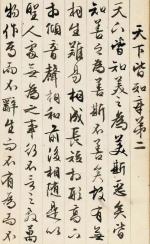 天下皆知章第二
天下皆知美之為美斯惡矣皆
知善之為善斯不善矣故有無
相生難易相成長短相形高下
相傾音聲相和前後相隨是以
聖人處無為之事行不言之教萬
物作焉而不辭生而不有為而不